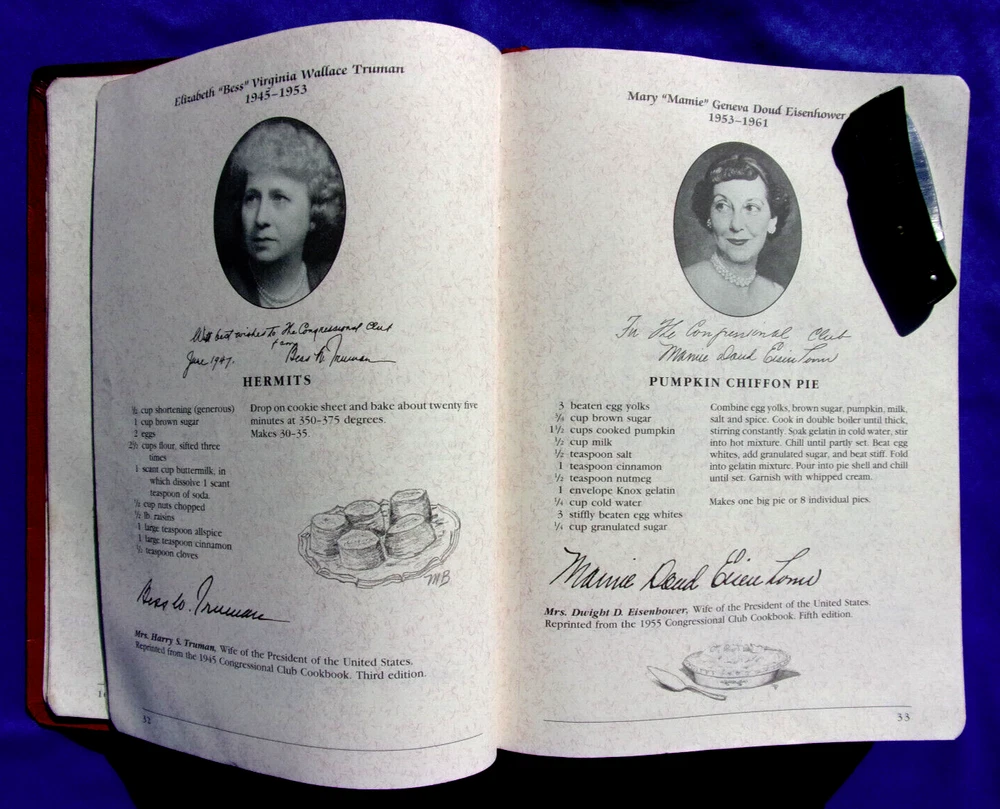 Elizabeth "Bess" Virginia Wallace Truman
1945–1953
With best wishes to The Congressional Club
from
June 1947. Bess W. Truman
HERMITS
½ cup shortening (generous)
1 cup brown sugar
2 eggs
2½ cups flour, sifted three
times
1 scant cup buttermilk, in
which dissolve 1 scant
teaspoon of soda
½ cup nuts chopped
½ lb. raisins
1 large teaspoon allspice
1 large teaspoon cinnamon
½ teaspoon cloves
Drop on cookie sheet and bake about twenty five
minutes at 350-375 degrees.
Makes 30-35.
MB
Bess W. Truman
Mrs. Harry S. Truman, Wife of the President of the United States.
Reprinted from the 1945 Congressional Club Cookbook. Third edition.
32
Mary "Mamie" Geneva Doud Eisenhower
1953–1961
For The Congressional Club
Mamie Doud Eisenhower
PUMPKIN CHIFFON PIE
3 beaten egg yolks
cup brown sugar
1½ cups cooked pumpkin
½ cup milk
½ teaspoon salt
1 teaspoon cinnamon
½ teaspoon nutmeg
1 envelope Knox gelatin
¼ cup cold water
3 stiffly beaten egg whites
¼ cup granulated sugar
Combine egg yolks, brown sugar, pumpkin, milk,
salt and spice. Cook in double boiler until thick,
stirring constantly. Soak gelatin in cold water, stir
into hot mixture. Chill until partly set. Beat egg
whites, add granulated sugar, and beat stiff. Fold
into gelatin mixture. Pour into pie shell and chill
until set. Garnish with whipped cream.
Makes one big pie or 8 individual pies.
Mamie Doud Eisenhower
Mrs. Dwight D. Eisenhower, Wife of the President of the United States.
Reprinted from the 1955 Congressional Club Cookbook. Fifth edition.
33